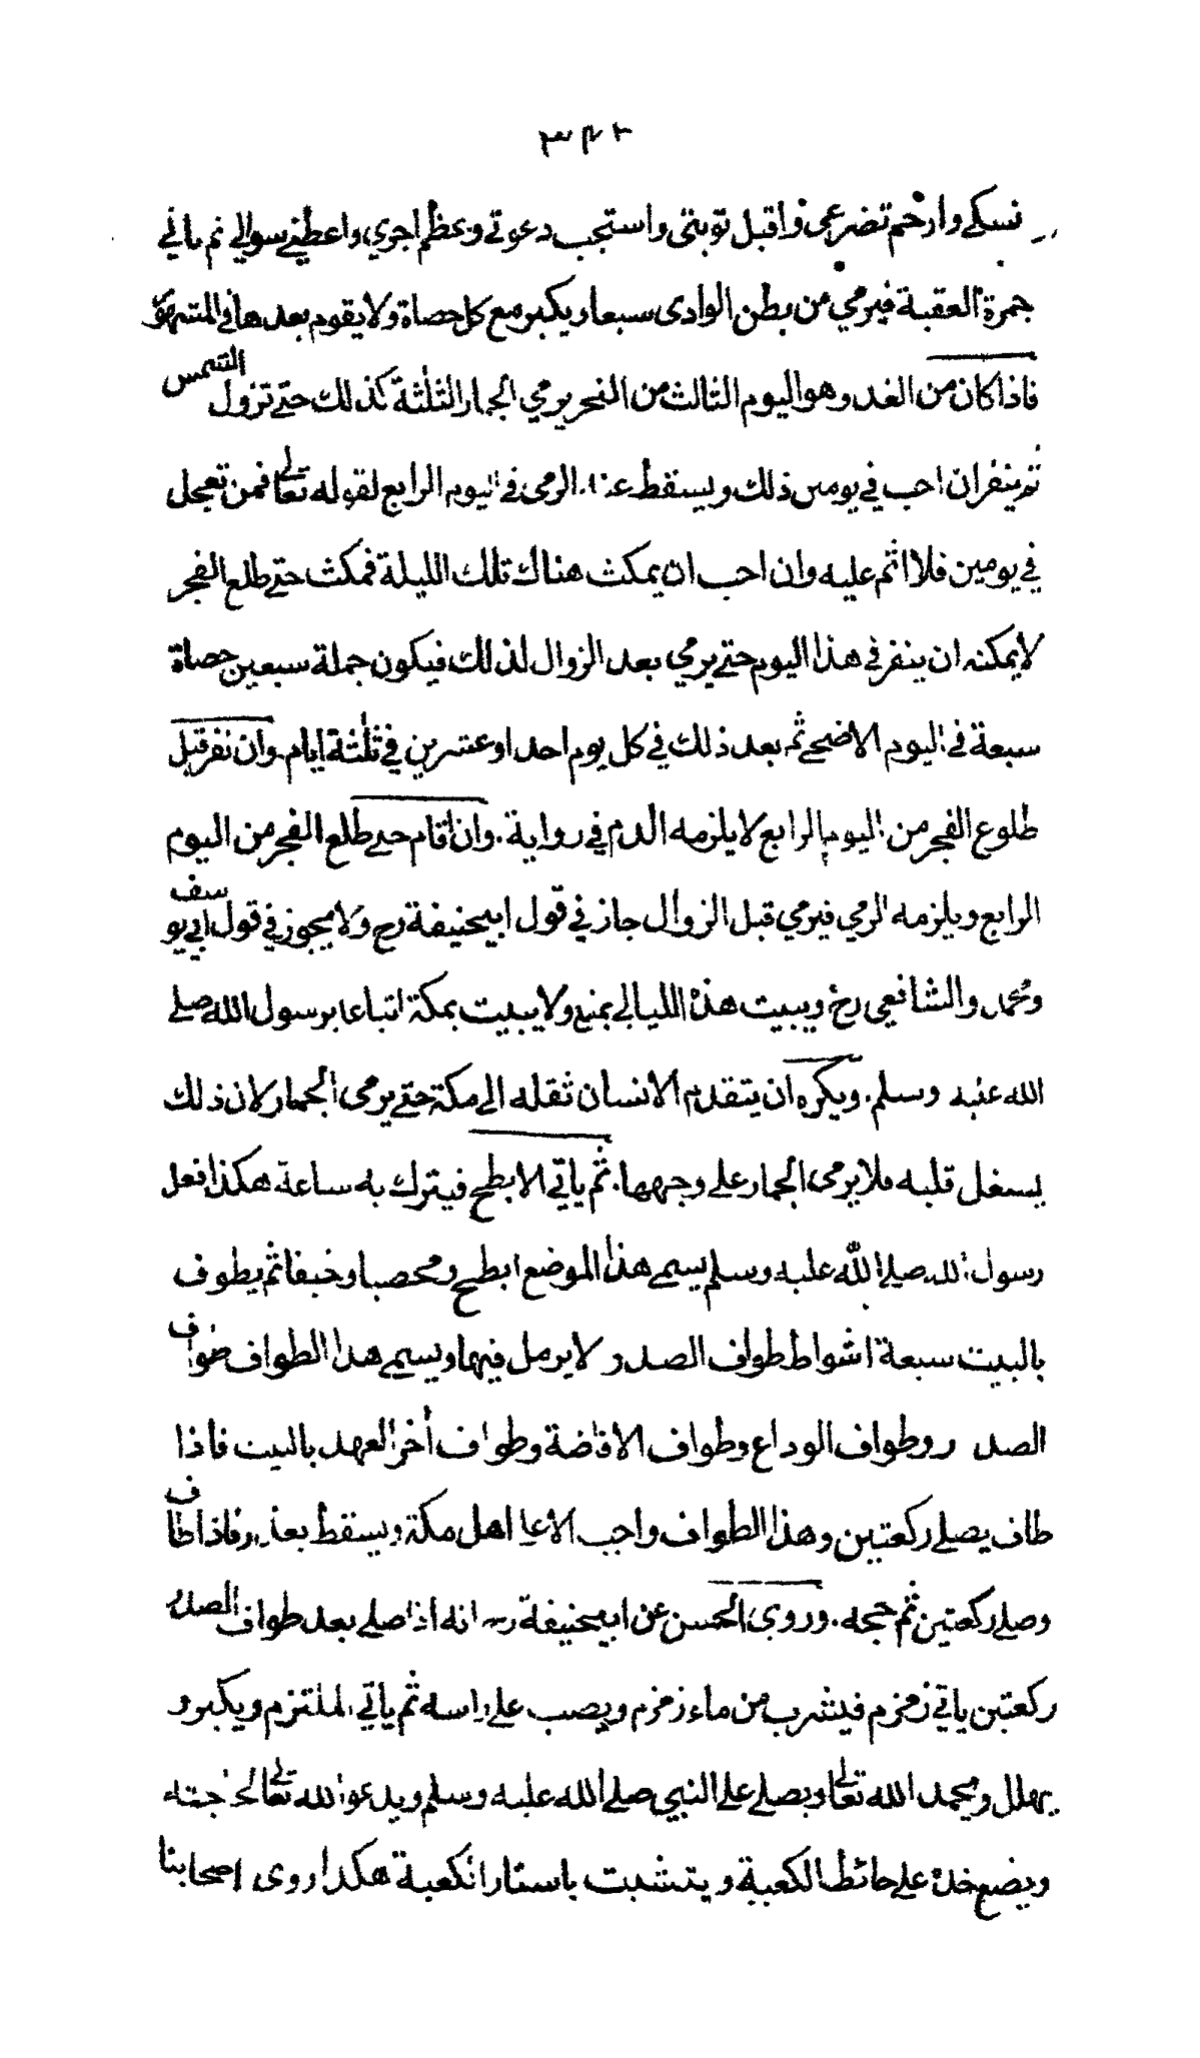 ٣٤٢
نسكي وارحم تضرعي واقبل توبتي واستجب دعوتي وعظم اجري واعطني سوالي ثم ياتي
جمرة العقبة فيرمي من بطن الوادي سبعا ويكبر مع كل حصاة ولا يقوم بعدها في المشهور
فاذا كان من الغد وهو اليوم الثالث من النحر يرمي الجمار الثلثة كذلك حتى تزول الشمس
ثم ينفر ان احب في يومين ذلك ويسقط عنه الرمي في اليوم الرابع لقوله تعالى فمن تعجل
في يومين فلا اثم عليه وان احب ان يمكث هناك تلك الليلة فمكث حتى طلع الفجر
لا يمكنه ان ينفر في هذا اليوم حتى يرمي بعد الزوال لذلك فيكون جملة سبعين حصاة
سبعة في اليوم الاضحى ثم بعد ذلك في كل يوم احد او عشرين في ثلثة ايام. وان نفر قبل
طلوع الفجر من اليوم الرابع لا يلزمه الدم في رواية. وان اقام حتى طلع الفجر من اليوم
الرابع ويلزمه الرمي فيرمي قبل الزوال جاز في قول ابيحنيفة رح ولا يجوز في قول ابي يوسف
ومحمد والشافعي رح ويبيت هذه الليالي بمنى ولا يبيت بمكة اتباعا برسول الله صلى
الله عليه وسلم. ويكره ان يتقدم الانسان ثقله الى مكة حتى يرمي الجمار لان ذلك
يسغل قلبه فلا يرمي الجمار على وجهها. ثم ياتي الابطح فيترك به ساعة هكذا فعل
رسول الله صلى الله عليه وسلم يسمى هذا الموضع ابطح ومحصبا وخيفا ثم يطوف
بالبيت سبعة اشواط طواف الصدر لا يرمل فيها ويسمى هذا الطواف طواف
الصدر وطواف الوداع وطواف الافاضة وطواف اخر العهد بالبيت فاذا
طاف يصلي ركعتين وهذا الطواف واجب الا على اهل مكة ويسقط بعذر فاذا طاف
وصلى ركعتين ثم حجه. وروى الحسن عن ابيحنيفة رح انه اذا صلى بعد طواف الصدر
ركعتين ياتي زمزم فيشرب من ماء زمزم ويصب على راسه ثم ياتي الملتزم ويكبر و
يهلل ويحمد الله تعالى ويصلي على النبي صلى الله عليه وسلم ويدعو الله تعالى لحاجته
ويضع خده على حائط الكعبة ويتشبث باستار الكعبة هكذا روى اصحابنا